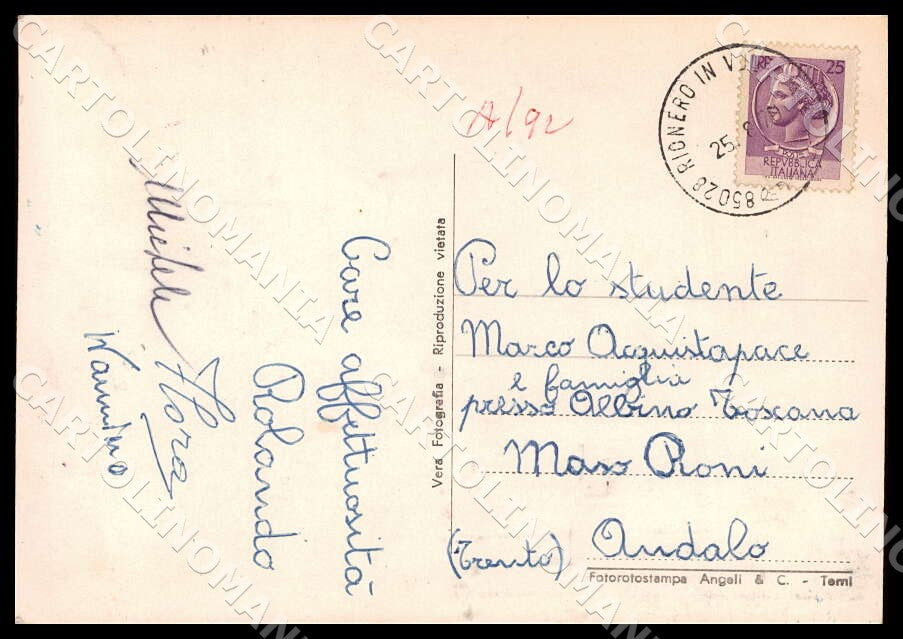 Care affettuosità
Rolando
Michele
Flora
A/92
85028 RIONERO IN VUL
25.
LIRE 25
REPVBBLICA
ITALIANA
Vera Fotografia - Riproduzione vietata
Per lo studente
Marco Acquistapace
e famiglia
presso Albino Toscana
Maso Roni
Andalo
(Trento)
Fotorotostampa Angeli & C. - Terni
CARTOLINOMANIA